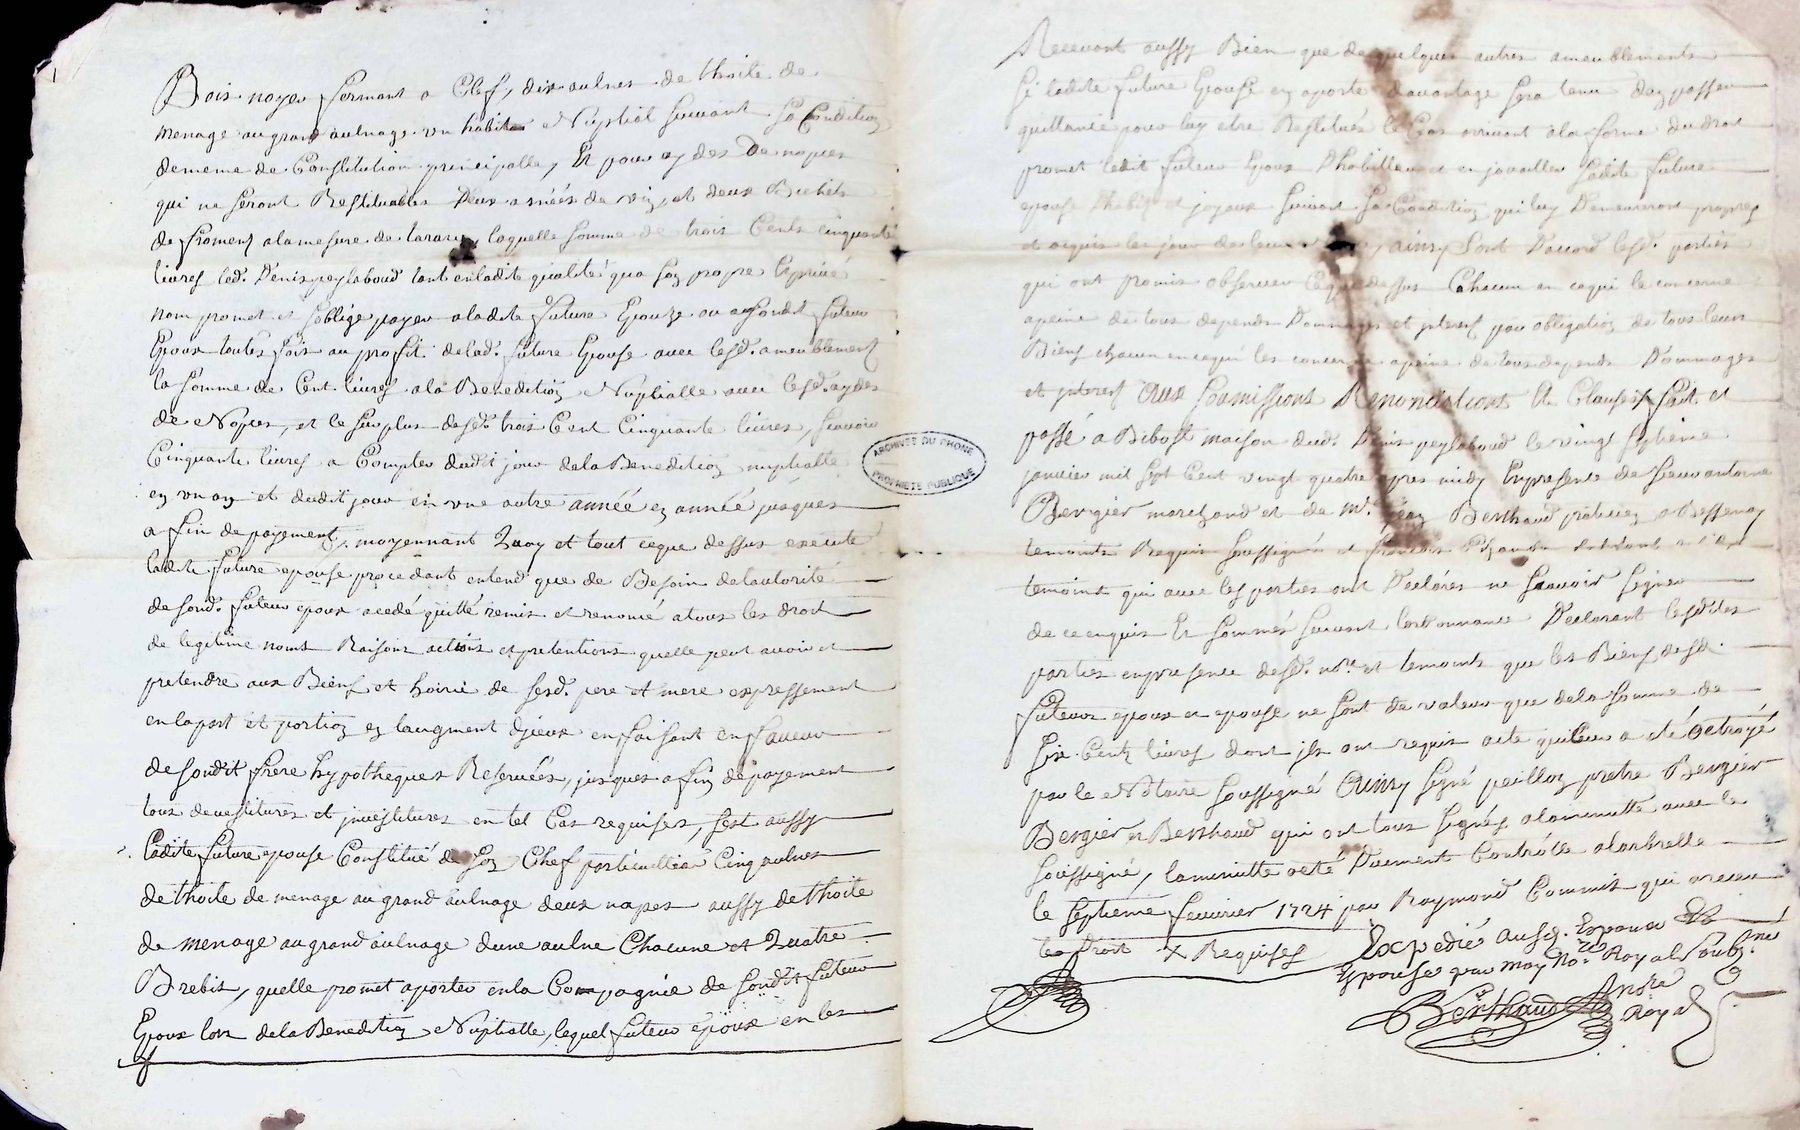 Bois noyer fermant a Clef, dix aulnes de thoile de
menage au grand aulnage un habit Nuptial suivant sa Condition
de meme de Constitution principalle, Et pour aydes de nopces
qui ne seront Restituables Deux asnéés de vin, et deux Bichets
de froment a la mesure de tarare, laquelle somme de trois Cents cinquante
livres led. Denis peylaboud tant en ladite qualité qua son propre Et privé
nom promet et soblige payer a ladite future Epouze ou audit futeur
Epoux toutes fois au proffit de lad. future Epouse avec lesd. ameublements
la somme de Cent livres a la Benediction Nuptialle avec lesd. aydes
de Nopces, et le surplus desd. trois Cent Cinquante livres, scavoir
Cinquante livres a Compter dudit jour de la Benediction nuptialle
en un an et dudit jour en une autre année en année jusques
a fin de payement, moyennant Quoy et tout ceque dessus execute
ladite future epouse procedant entend que de Besoin de lautorité
de sond. futeur epoux a cedé quitté remis et renoncé a tous les droit
de legitime noms Raisons actions et pretentions quelle peut avoir et
pretendre aux Biens et hoirie de sesd. pere et mere expressement
en la part et portion en laugment djceux en faisant en faveur
de sondit frere hypotheques Reservées, jusques a fin de payement
tous devestitures et jnvestitures en tel Cas requises, sest aussy
Ladite future epouse Constitué de son Chef particullier Cinq aulnes
de thoile de menage au grand aulnage deux napes aussy de thoile
de menage au grand aulnage dune aulne Chacune et Quatre
Brebis, quelle promet aporter en la Compagnie de sondit futeur
Epoux lors de la Benediction Nuptialle, lequel futeur epoux en les
Recevant aussy Bien que de quelques autres ameublements
si ladite future Epouse en aporte davantage sera tenu den passer
quittance pour luy etre Restitués le Cas arrivant a la forme du droit
promet ledit futeur Epoux dhabiller et enjoualler ladite future
epouse dhabits et joyaux suivant sa Condition qui luy Demeureront propres
et acquis les jour de leur ainsy sont Daccord lesd. parties
qui ont promis observer ce que dessus Chacun en ce qui le concerne
a peine de tous depends Dommages et jnterest par obligation de tous leurs
Biens chacun en cequi les concerne a peine de tous depends Dommages
et jnterest aux soumissions Renonciations Et Clauses X fait et
passé a Bibost maison dud. Denis peylaboud le vingt septieme
janvier mil sept Cent vingt quatre apres midy En presence de sieur antoine
Bergier marchand et de Mr. Jean Berthaud praticien a Bessenay
temoins Requis soussignés et francois
temoins qui avec les parties ont Declarés ne scavoir signer
de ce enquis Et sommés suivant lordonnance Declarant lesdites
parties en presence desd. nore. et temoins que les Biens desd.
futeurs epoux et epouse ne sont de valeur que de la somme de
six Cents livres dont jls ont requis acte qui leur a eté octroyé
par le Notaire soussigné Ainsy signé peillon pretre Bergier
Bergier et Berthaud qui ont tous signés a la minutte avec le
soussigné, la minutte a eté Duement Controlée a larbrelle
le septieme fevrier 1724 par Raymond Commis qui a receu
les droit X Requises
Expedié ausd. Epoux Et
Epouse par moy Nore. Royal soubz.né
Berthaud Nore
Royal
ARCHIVES DU RHONE
PROPRIETE PUBLIQUE